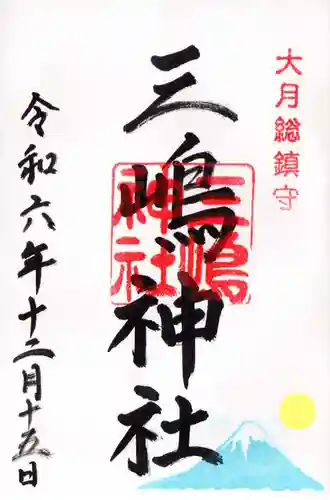 大月総鎮守
三嶋神社
三嶋神社
令和六年十二月十五日